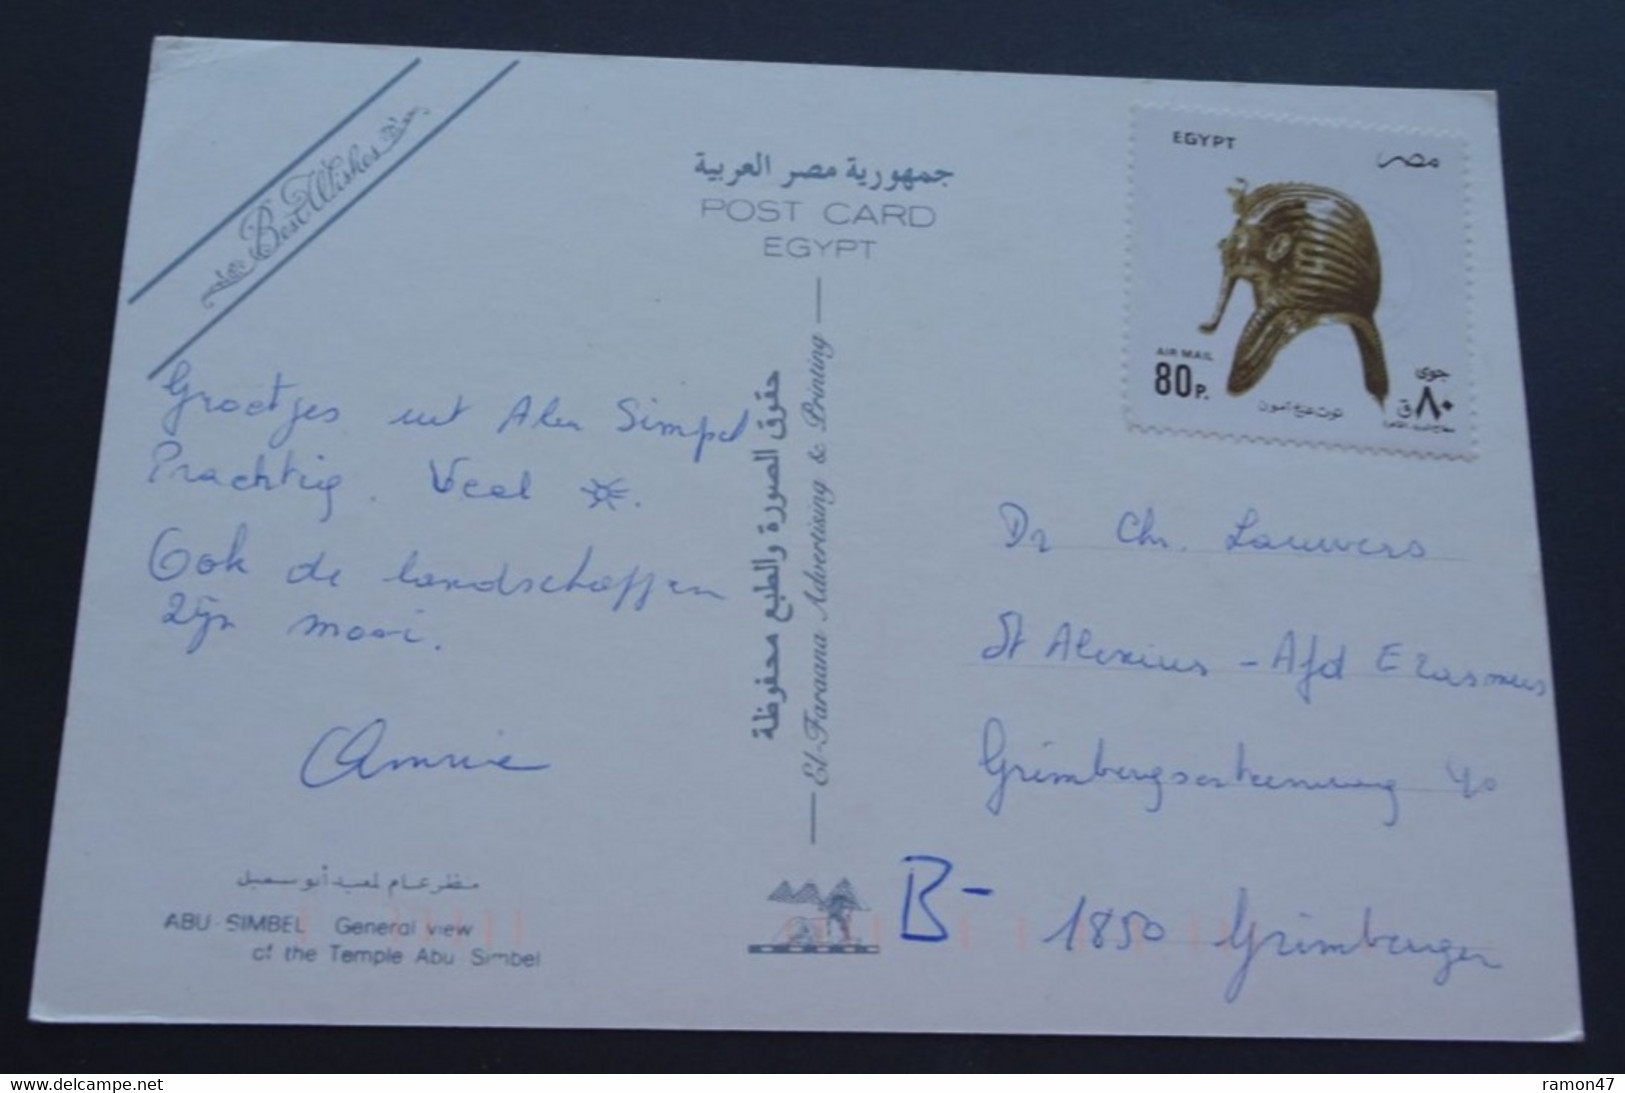 Best Wishes
Groetjes uit Abu Simpel
Prachtig. Veel
Ook de landschappen
zijn mooi.
Annie
منظر عام لمعبد أبو سمبل
ABU SIMBEL General view
of the Temple Abu Simbel
جمهورية مصر العربية
POST CARD
EGYPT
حقوق الصورة والطبع محفوظة
El-Faraana Advertising & Printing
EGYPT مصر
AIR MAIL
80P.
جوى
٨٠ق
توت عنخ آمون
Dr Chr. Lauwers
St Alexius - Afd Erasmus
Grimbergsesteenweg 40
B- 1850 Grimbergen
www.delcampe.net
ramon47